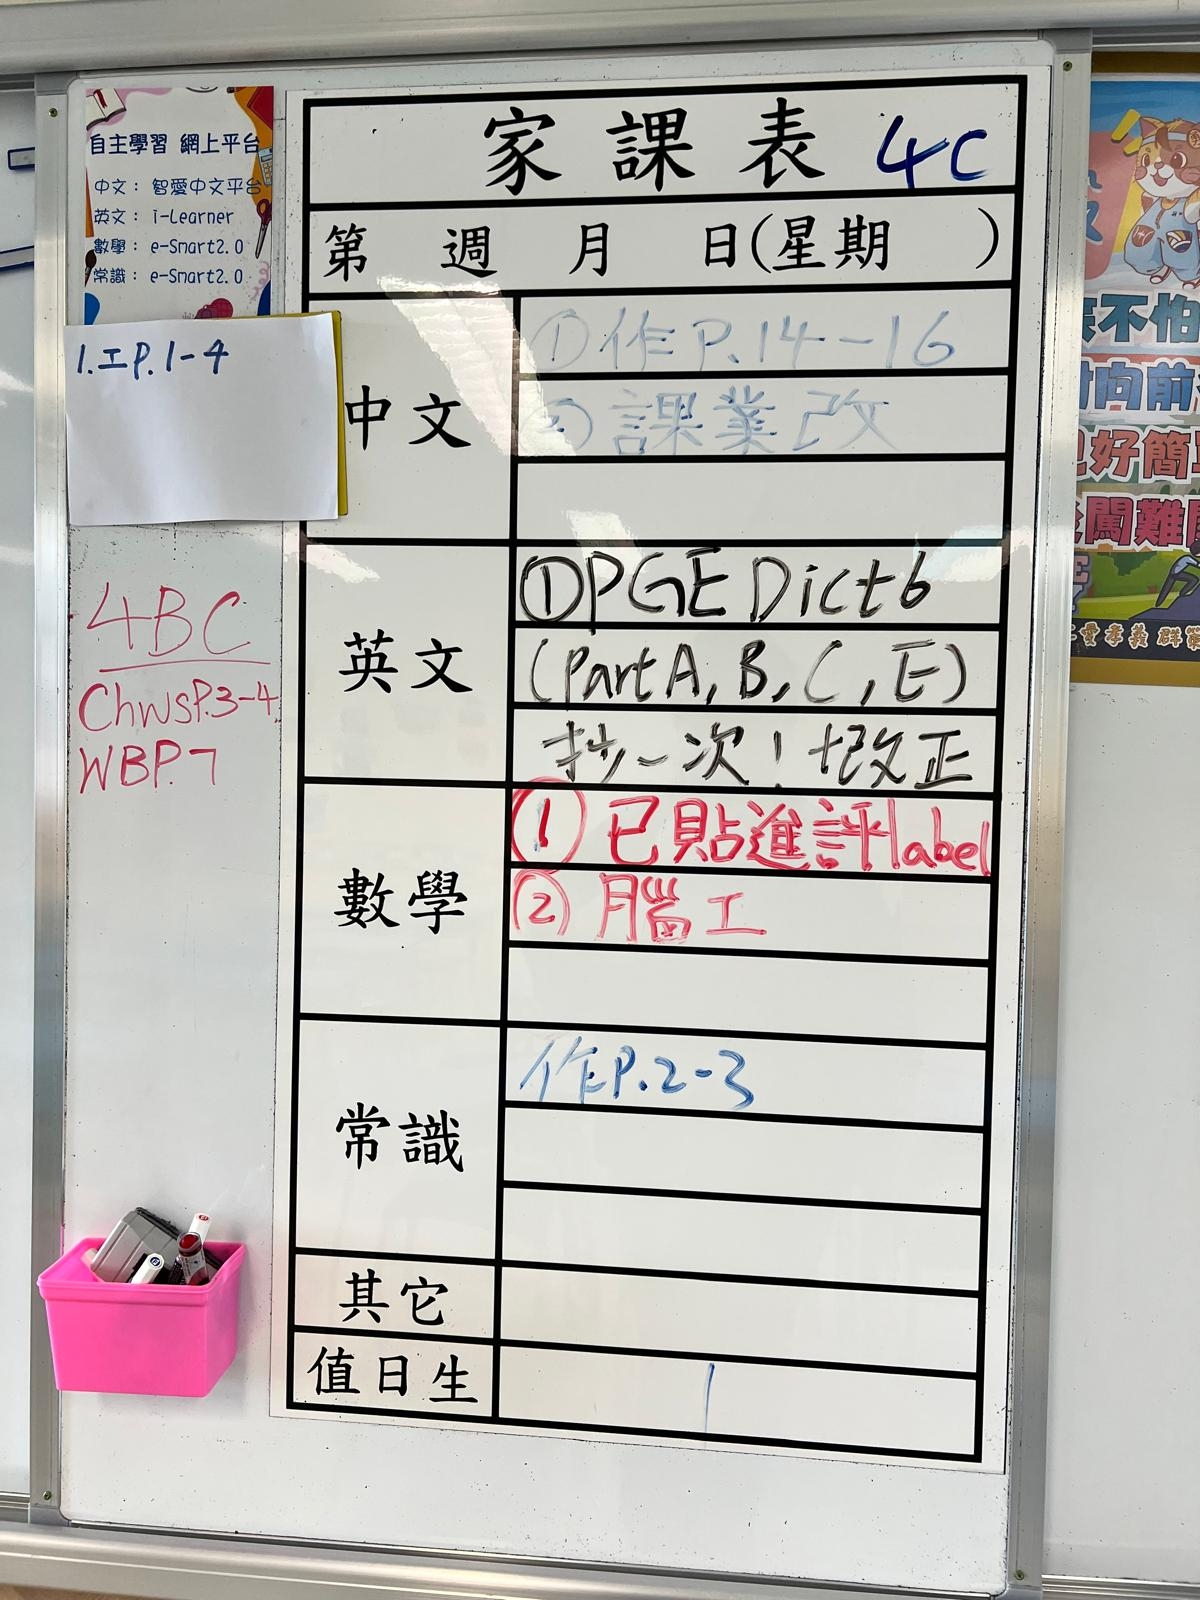 自主學習 網上平台
中文： 智愛中文平台
英文： i-Learner
數學： e-Smart2.0
常識： e-Smart2.0
1.工P.1-4
4BC
ChwsP.3-4
WBP.7
家課表 4C
第 週 月 日(星期 )
中文
①作P.14-16
②課業改
英文
①PGE Dict 6
(Part A, B, C, E)
抄一次！+改正
數學
① 已貼進評label
② 腦工
常識
作P.2-3
其它
值日生
1
不怕
向前
好簡
闖難
孝義 群